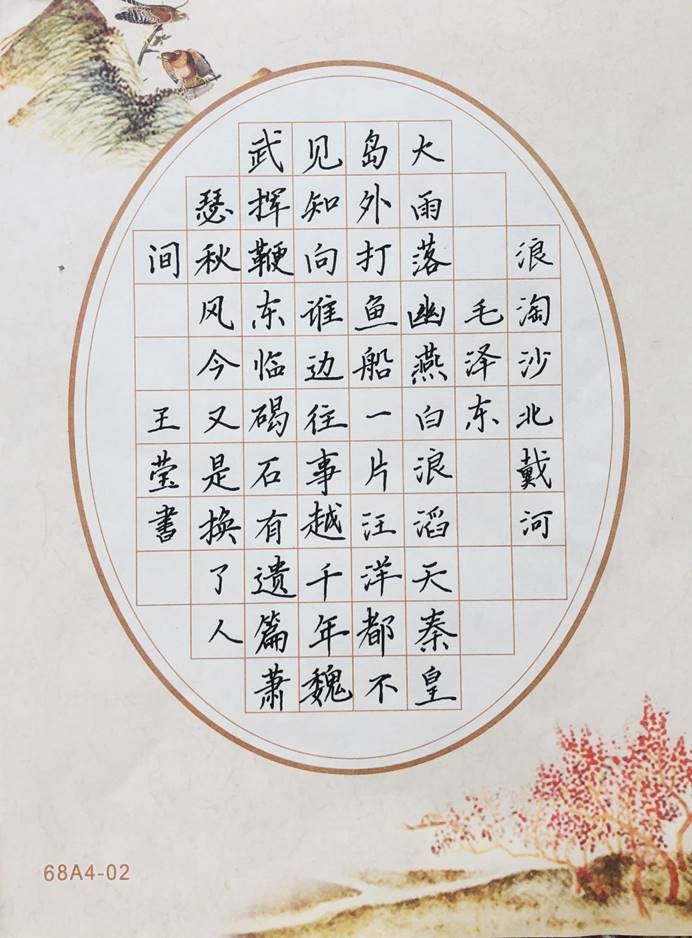 浪淘沙北戴河
毛泽东
大雨落幽燕白浪滔天秦皇
岛外打鱼船一片汪洋都不
见知向谁边往事越千年魏
武挥鞭东临碣石有遗篇萧
瑟秋风今又是换了人
间 王莹書
68A4-02